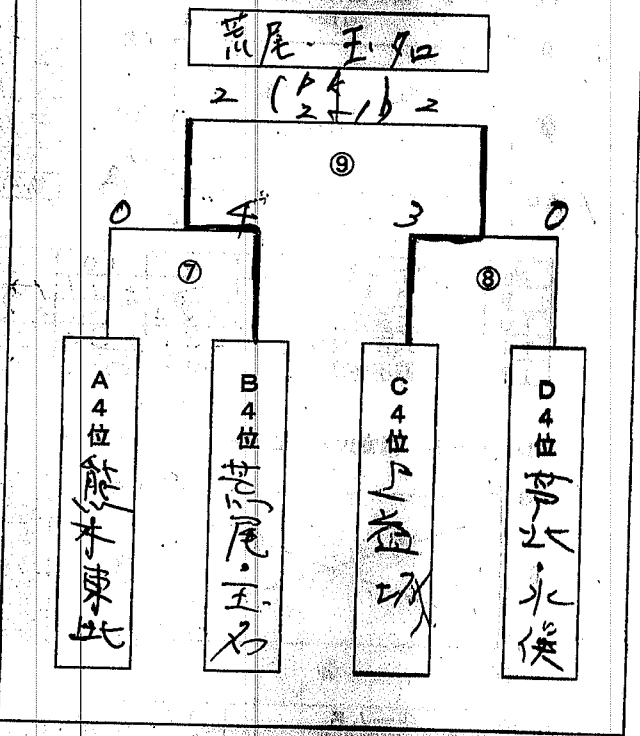 荒尾・玉名
2 (PK 2-1) 2
⑨
0 4 3 0
⑦ ⑧
A4位 熊本東北
B4位 荒尾・玉名
C4位 下益城
D4位 芦北・水俣